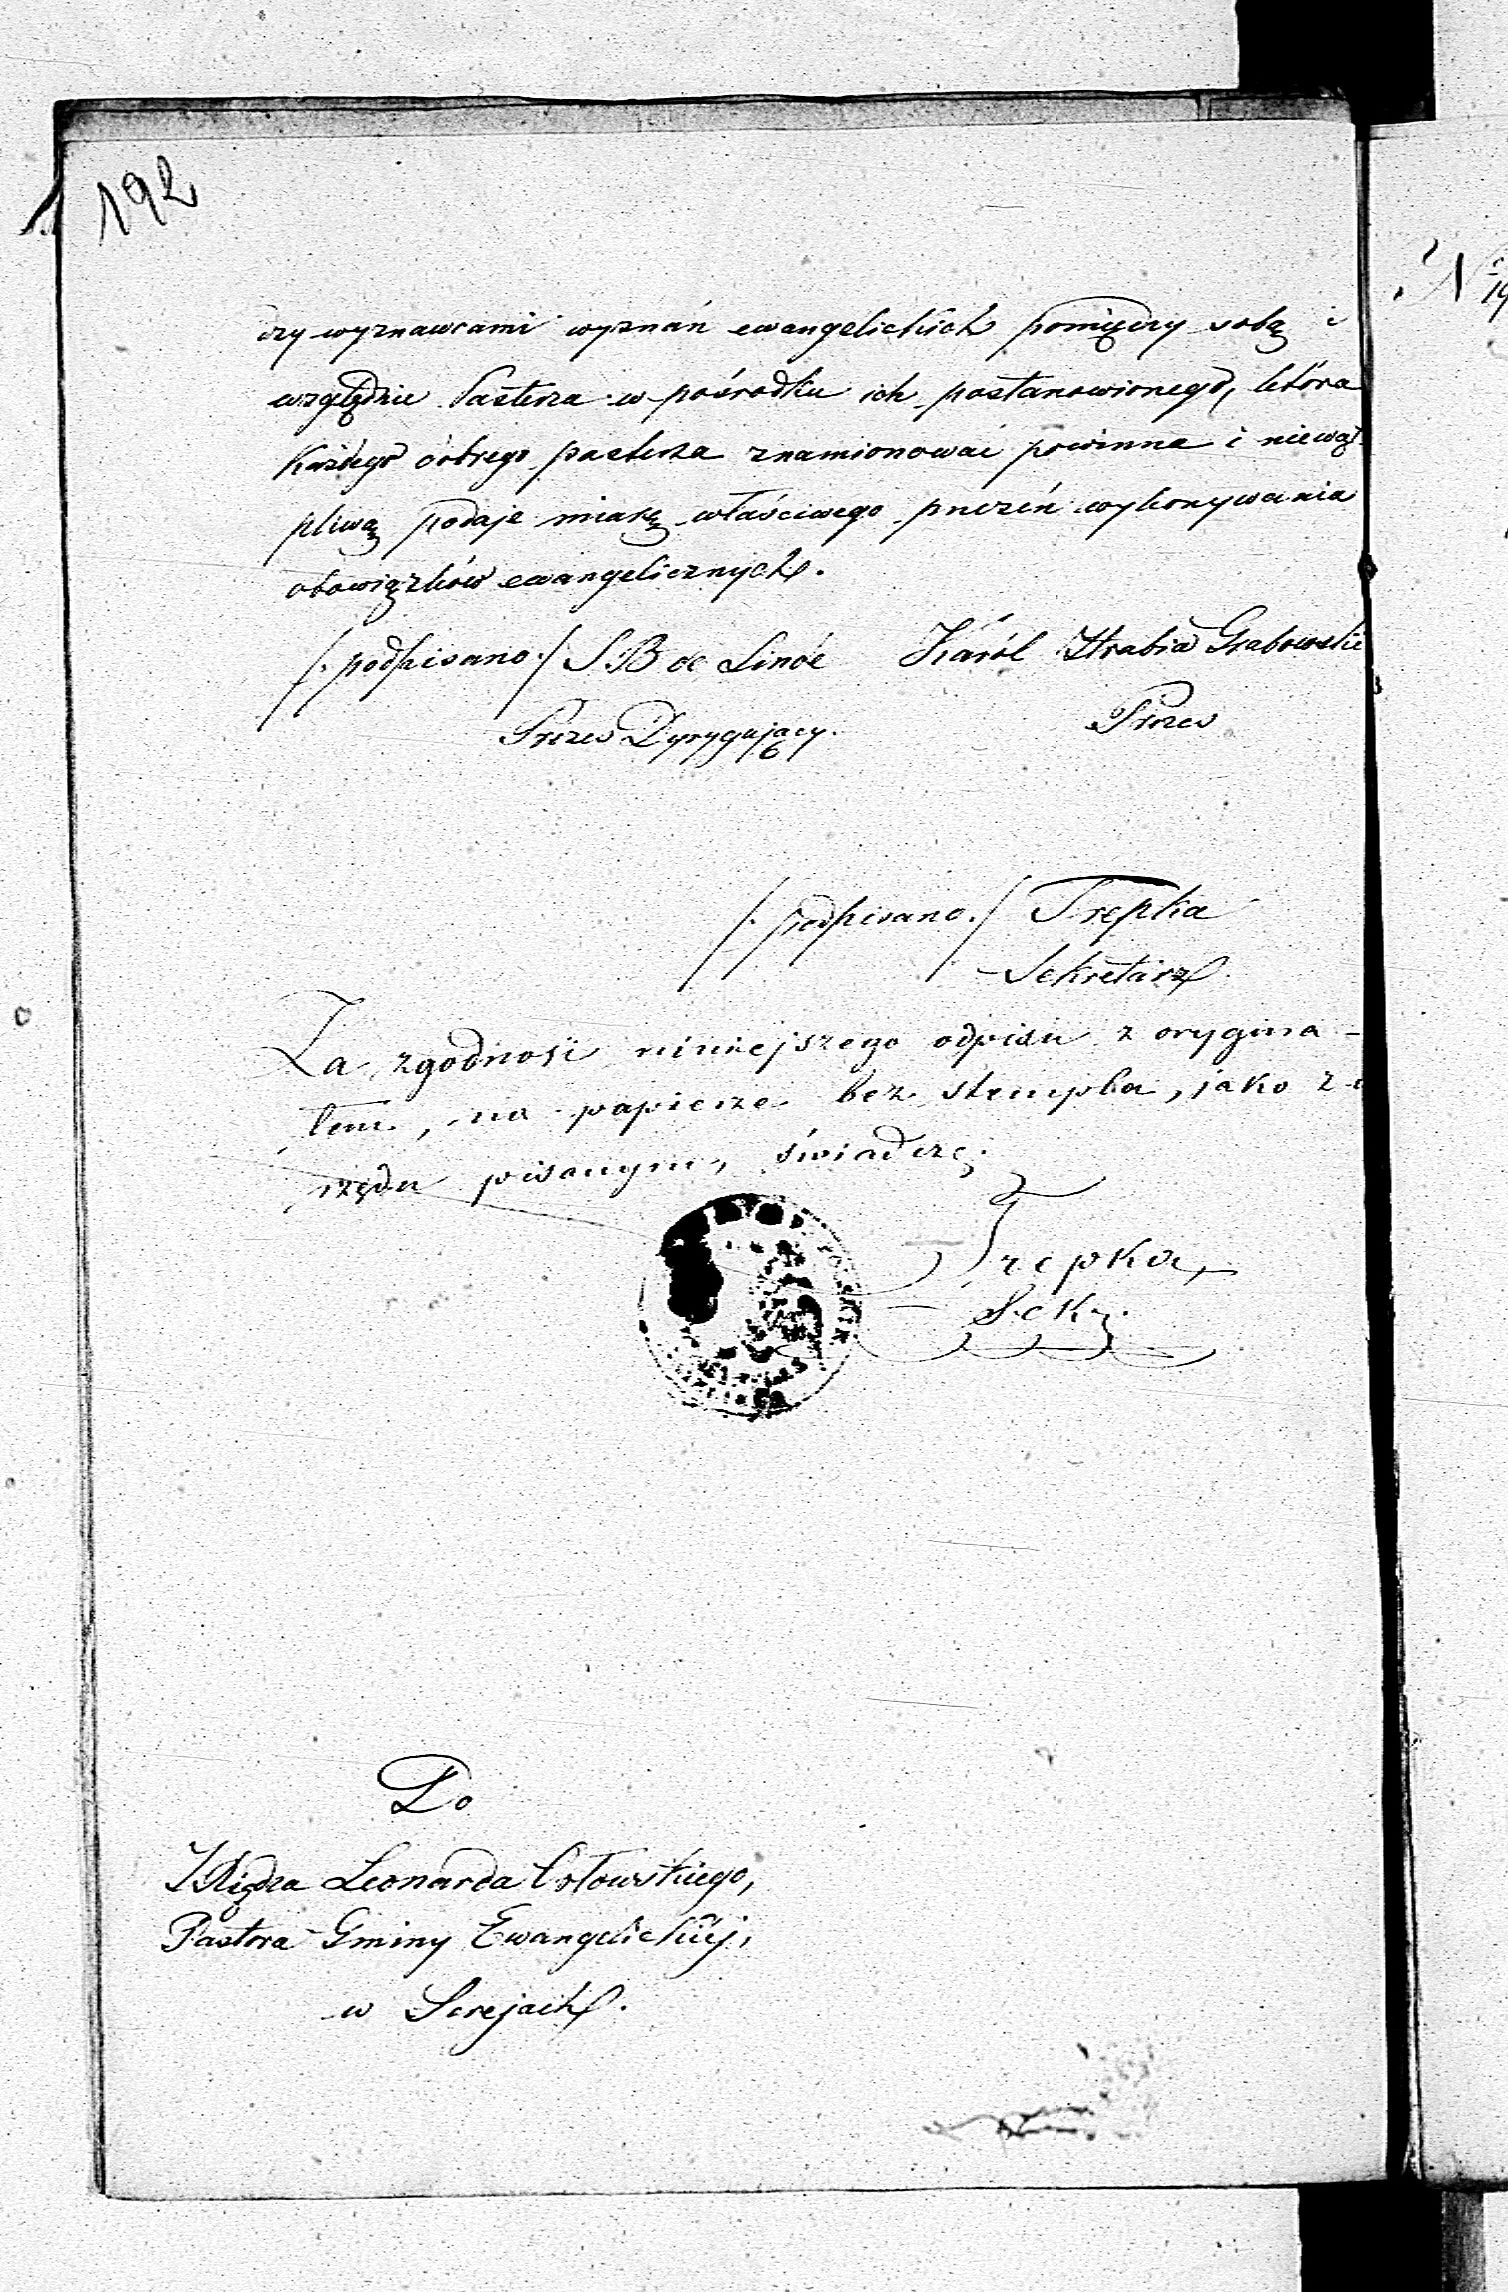 192
dzy wyznawcami wyznań ewangelickich pomiędzy sobą i
względzie Pasterza w pośrodku ich postanowionego, która
każdego dobrego pasterza znamionować powinna i niewąt-
pliwą podaje miarę właściwego przezeń wykonywania
obowiązków ewangelicznych.
/: podpisano :/ S. B. de Linde Karól Hrabia Grabowski
Prezes Dyrygujący. Prezes
/: podpisano :/ Trepka
Sekretarz.
Za zgodność niniejszego odpisu z orygina-
łem, na papierze bez stempla, jako z u
rzędu pisanym, świadczę.
Trepka,
Sekr.
Do
Księdza Leonarda Orłowskiego,
Pastora Gminy Ewangelickiéj,
w Serejach.